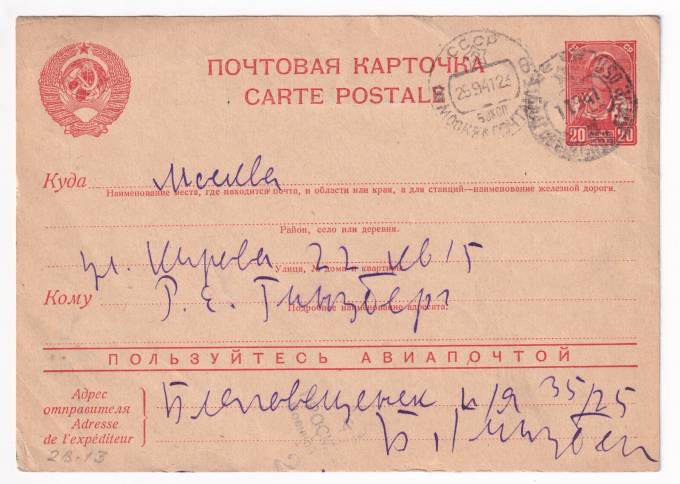 ПОЧТОВАЯ КАРТОЧКА
CARTE POSTALE
СССР
МОСКВА
29.9.41.23
20 20
Куда Москва
Наименование места, где находится почта, и области или края, а для станций—наименование железной дороги.
Район, село или деревня.
ул. Кирова 22 кв 15
Улица, № дома и квартиры.
Кому Р. Е. Гинзберг
Подробное наименование адресата.
ПОЛЬЗУЙТЕСЬ АВИАПОЧТОЙ
Адрес
отправителя
Adresse
de l'expéditeur
Благовещенск п/я 35/25
Б. Гинзбе
2В-13